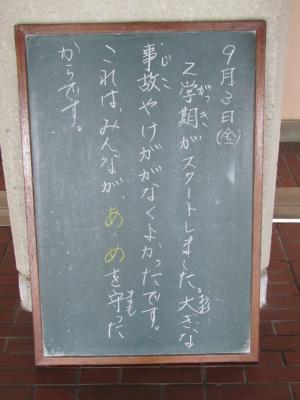 9月3日(金)
2学期がスタートしました。大きな
事故やけががなくよかったです。
これは、みんなが、あ・めを守った
からです。